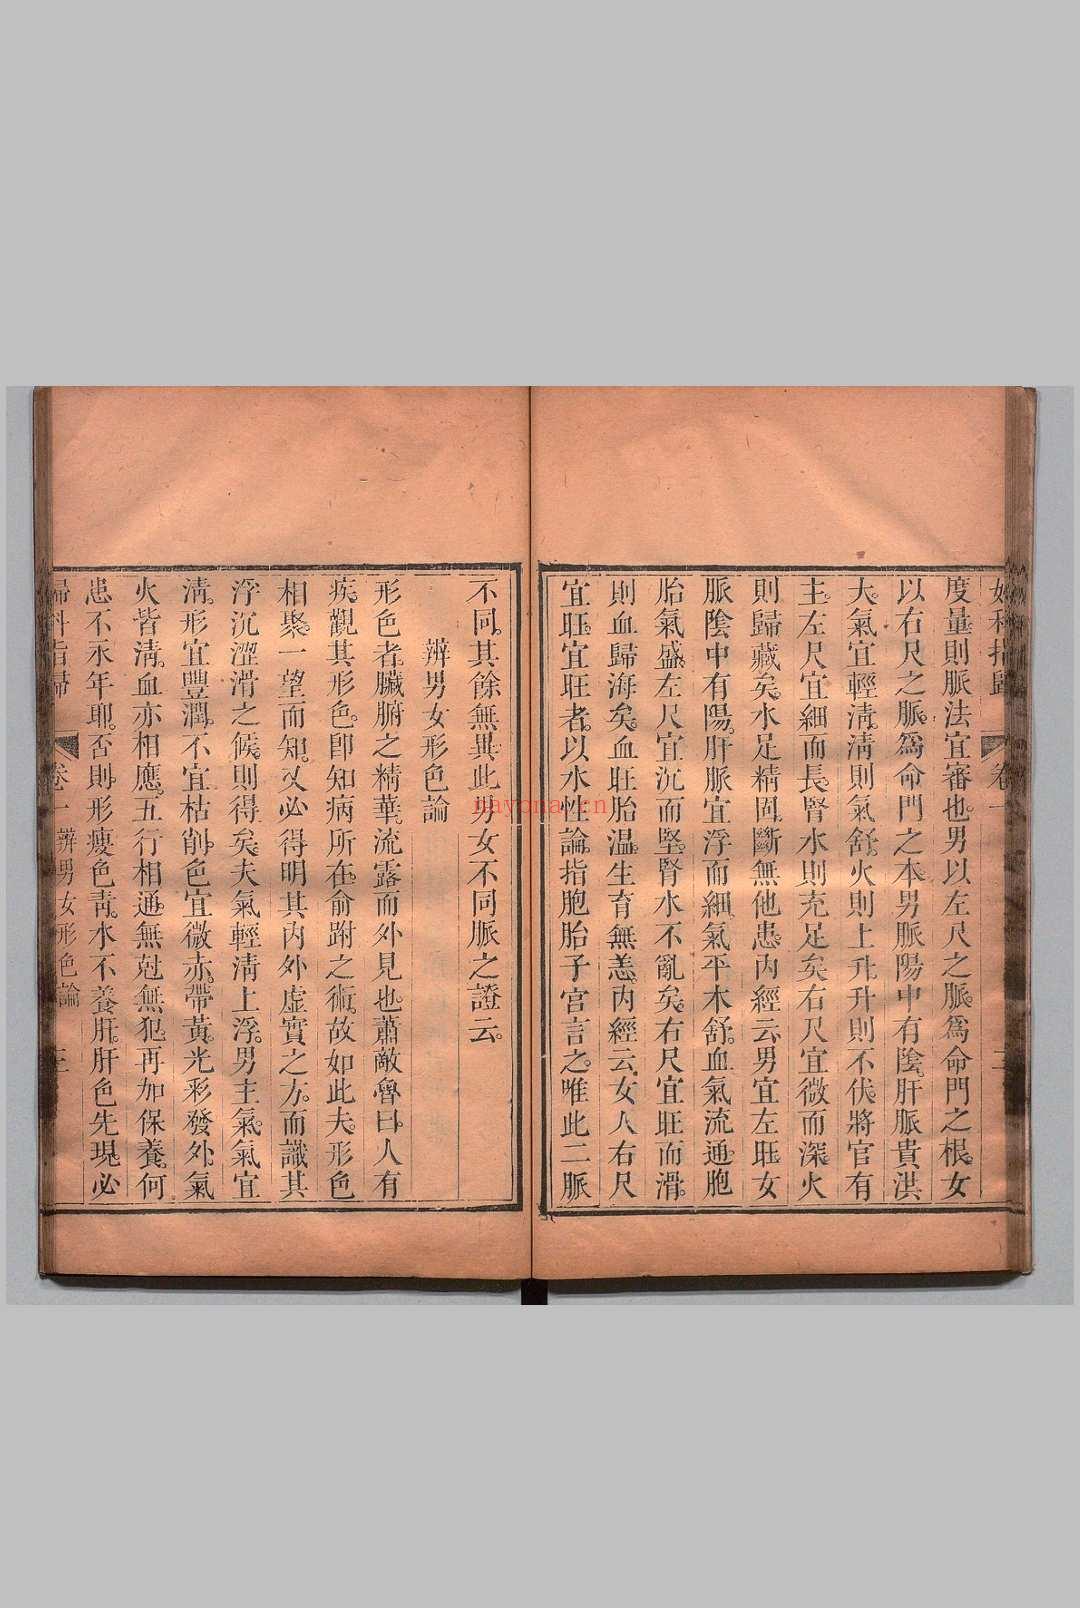 婦科指歸 卷一 二
度量則脈法宜審也男以左尺之脈為命門之根女
以右尺之脈為命門之本男脈陽中有陰肝脈貴洪
大氣宜輕清清則氣舒火則上升升則不伏將官有
主左尺宜細而長腎水則充足矣右尺宜微而深火
則歸藏矣水足精固斷無他患內經云男宜左旺女
脈陰中有陽肝脈宜浮而細氣平木舒血氣流通胞
胎氣盛左尺宜沉而堅腎水不亂矣右尺宜旺而滑
則血歸海矣血旺胎溫生育無恙內經云女人右尺
宜旺宜旺者以水性論指胞胎子宮言之唯此二脈
不同其餘無異此男女不同脈之證云
辨男女形色論
形色者臟腑之精華流露而外見也蕭敵魯曰人有
疾觀其形色卽知病所在俞跗之術故如此夫形色
相聚一望而知又必得明其內外虛實之方而識其
浮沉澀滑之候則得矣夫氣輕清上浮男主氣氣宜
清形宜豐潤不宜枯削色宜微赤帶黃光彩發外氣
火皆清血亦相應五行相通無尅無犯再加保養何
患不永年耶否則形瘦色青水不養肝肝色先現必
婦科指歸 卷一 辨男女形色論 三
nayona.cn